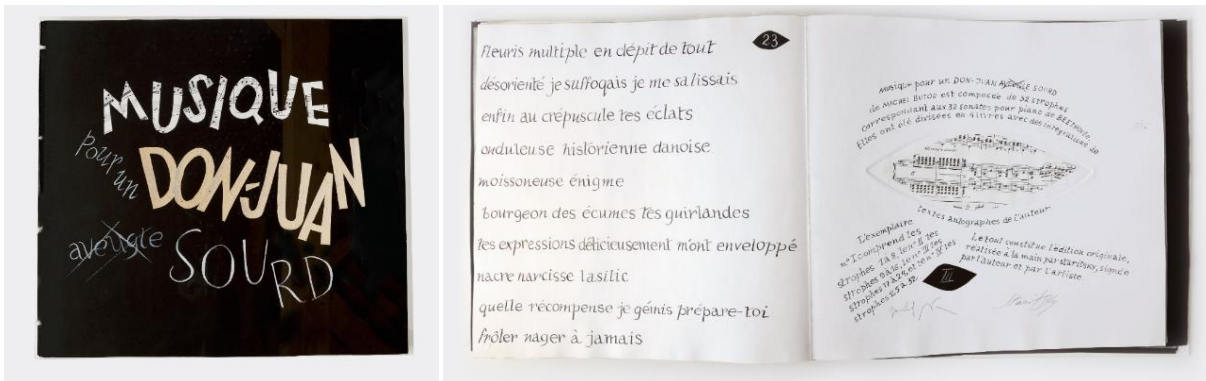 MUSIQUE
pour un
DON-JUAN
aveugle
SOURD
23
fleuris multiple en dépit de tout
désorienté je suffoqais je me salissais
enfin au crépuscule tes éclats
onduleuse historienne danoise
moissoneuse énigme
bourgeon des écumes tes guirlandes
tes expressions délicieusement m'ont enveloppé
nacre narcisse lasilic
quelle récompense je gémis prépare-toi
frôler nager à jamais
Musique pour un DON-JUAN AVEUGLE SOURD
de MICHEL BUTOR est composée de 32 strophes
correspondant aux 32 sonates pour piano de BEETHOVEN.
Elles ont été divisées en 4 livres avec des intégrations de
textes autographes de l'auteur
L'exemplaire
n° I comprend les
strophes 1 à 8, le n° II les
strophes 9 à 16, le n° III les
strophes 17 à 24, et le n° IV les
strophes 25 à 32.
Le tout constitue l'édition originale,
réalisée à la main par Staritsky, signée
par l'auteur et par l'artiste.
III